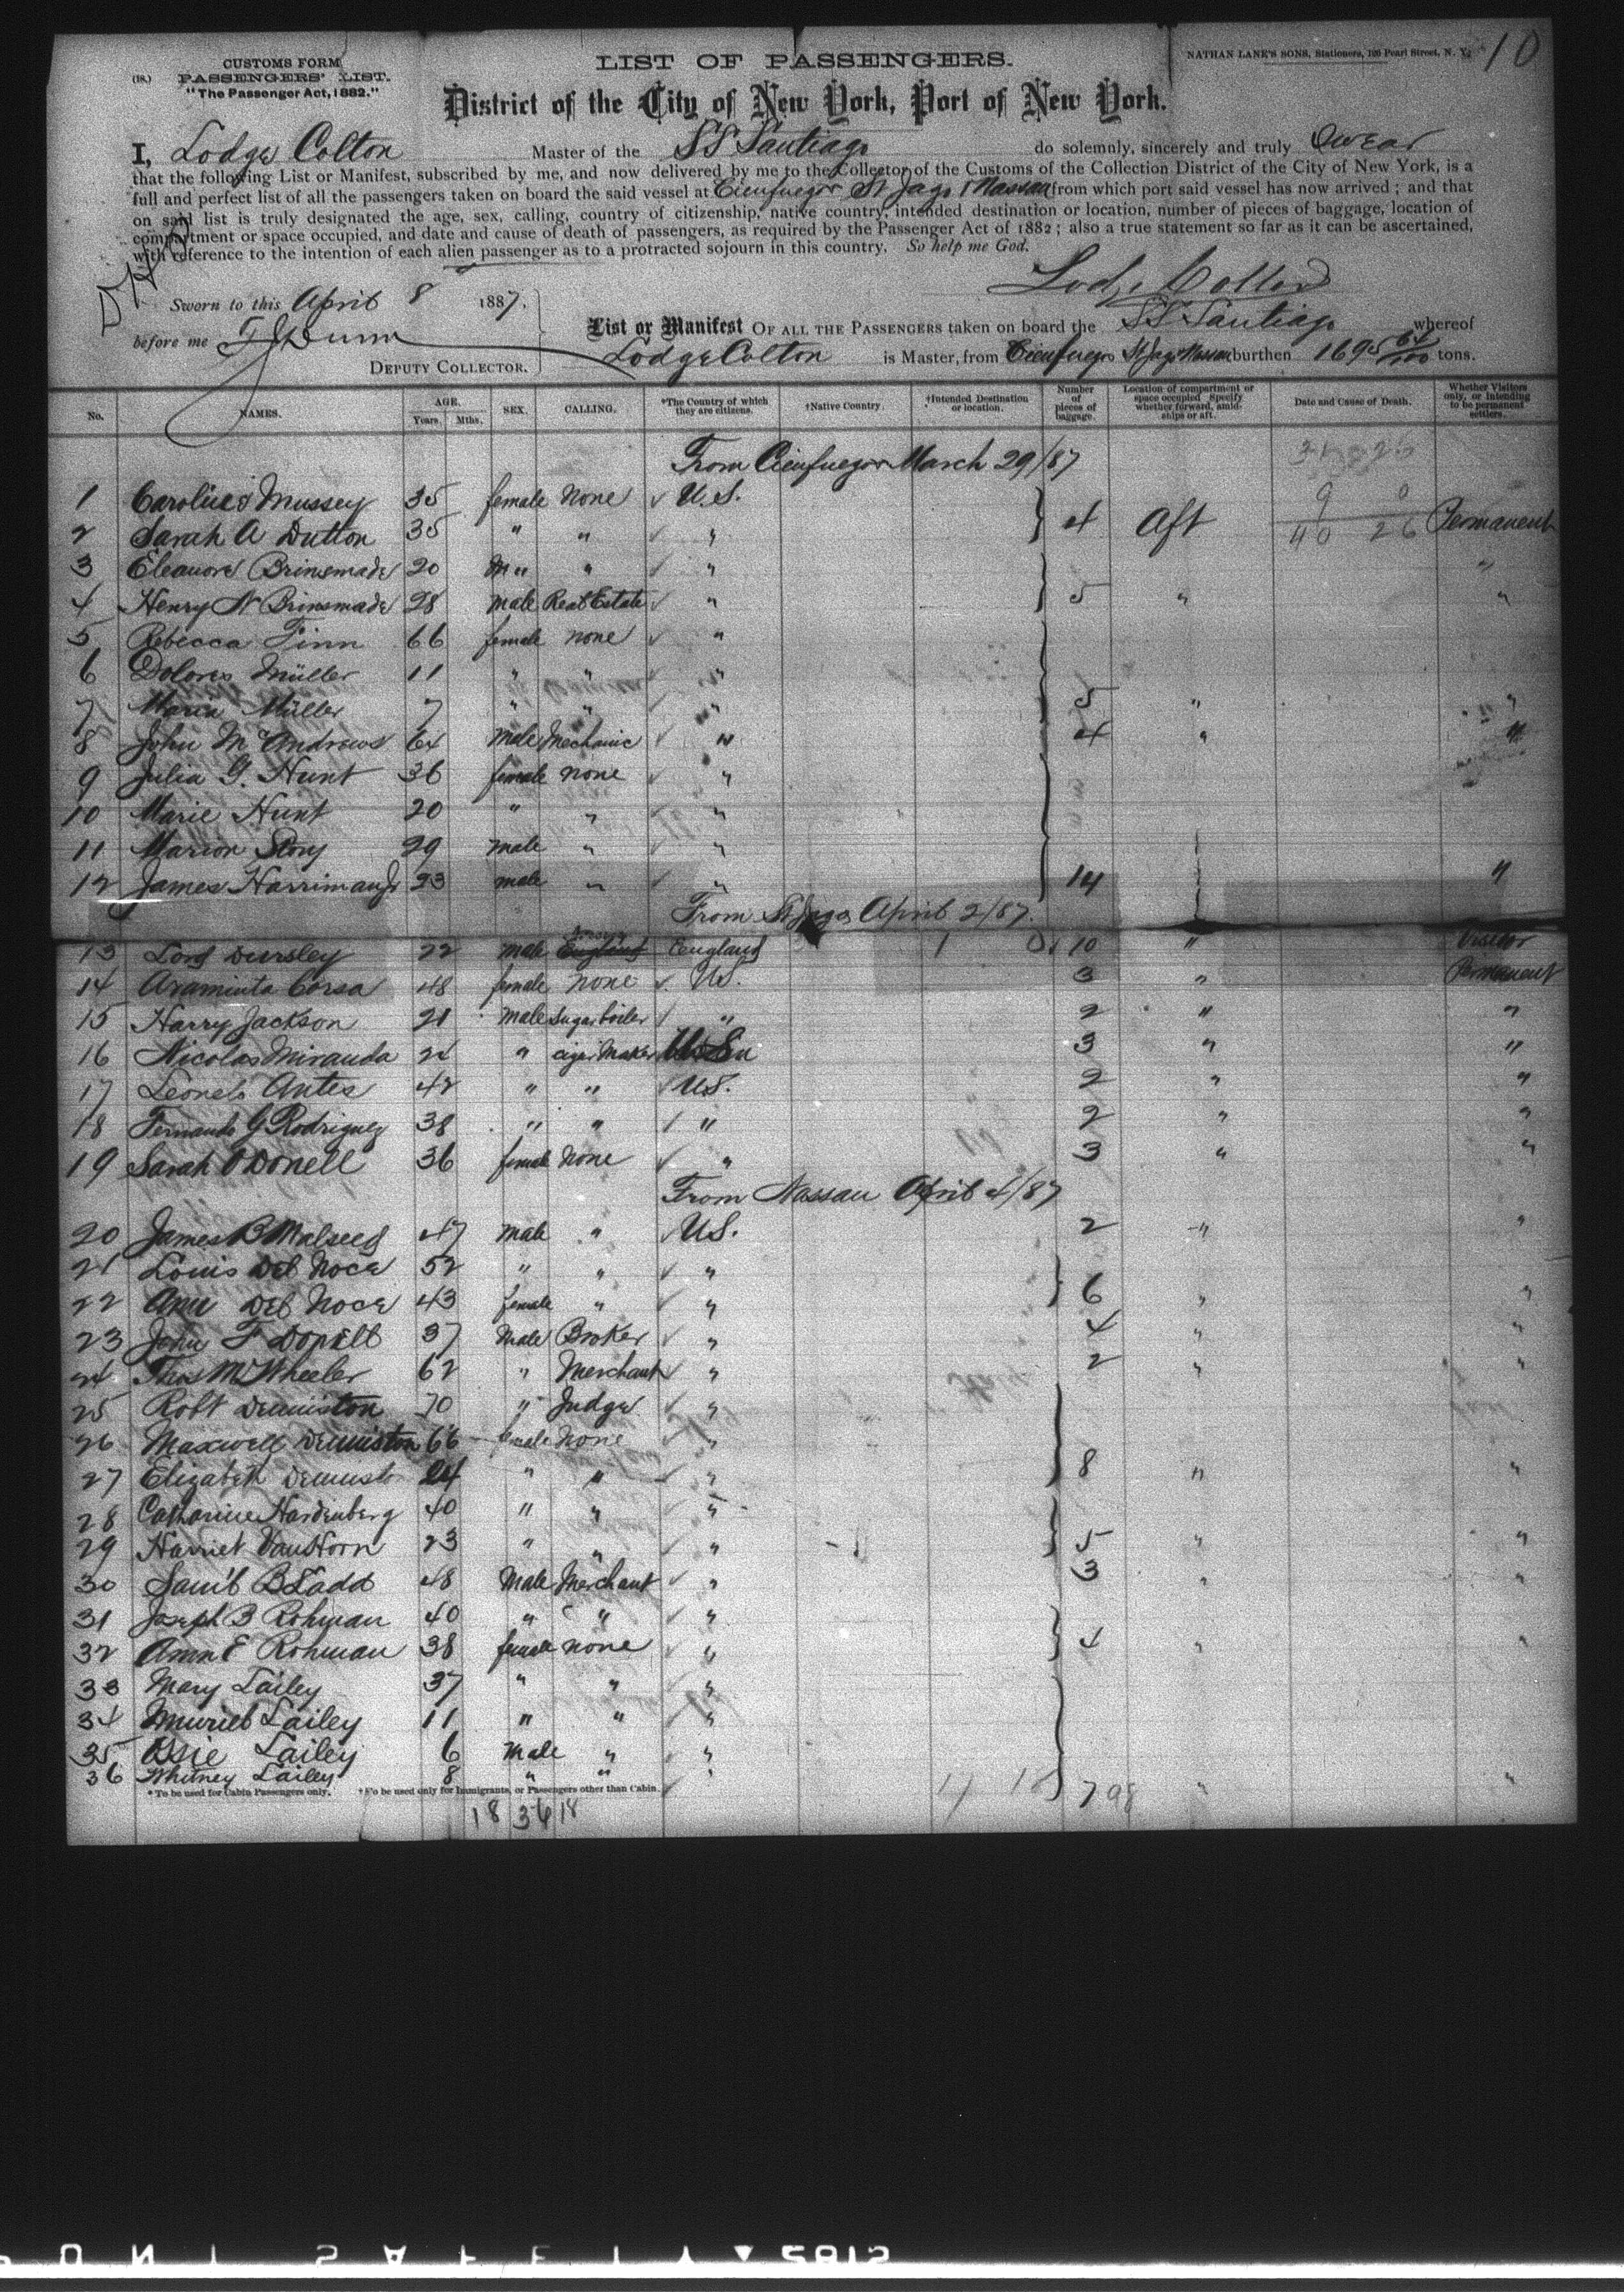 CUSTOMS FORM
(18.) PASSENGERS' LIST.
"The Passenger Act, 1882."
LIST OF PASSENGERS.
NATHAN LANE'S SONS, Stationers, 126 Pearl Street, N. Y.
10
District of the City of New York, Port of New York.
I, Lodge Colton Master of the SS Santiago do solemnly, sincerely and truly Swear
that the following List or Manifest, subscribed by me, and now delivered by me to the Collector of the Customs of the Collection District of the City of New York, is a
full and perfect list of all the passengers taken on board the said vessel at Cienfuegos St Jago & Nassau from which port said vessel has now arrived; and that
on said list is truly designated the age, sex, calling, country of citizenship, native country, intended destination or location, number of pieces of baggage, location of
compartment or space occupied, and date and cause of death of passengers, as required by the Passenger Act of 1882; also a true statement so far as it can be ascertained,
with reference to the intention of each alien passenger as to a protracted sojourn in this country. So help me God.
Lodge Colton
Sworn to this April 8 1887.
before me F J Dunn
DEPUTY COLLECTOR.
List or Manifest OF ALL THE PASSENGERS taken on board the SS Santiago whereof
Lodge Colton is Master, from Cienfuegos St Jago Nassau burthen 1695 64/100 tons.
No. NAMES. AGE. Years. Mths. SEX. CALLING. *The Country of which they are citizens. †Native Country. †Intended Destination or location. Number of pieces of baggage. Location of compartment or space occupied. Specify whether forward, amidships or aft. Date and Cause of Death. Whether Visitors only, or intending to be permanent settlers.
From Cienfuegos March 29/87
1 Caroline Mussey 35 female None U.S.
2 Sarah A Dutton 35 " " " 4 Aft 40 26 Permanent
3 Eleanore Brinsmade 20 " " " "
4 Henry N Brinsmade 28 male Real Estate " 5 " "
5 Rebecca Finn 66 female none "
6 Dolores Müller 11 " " "
7 Maria Müller 7 " " " 5 " "
8 John McAndrews 64 Male Mechanic " 4 " "
9 Julia G. Hunt 36 female none "
10 Marie Hunt 20 " " "
11 Marion Story 29 male " "
12 James Harriman Jr 23 male " " 14 "
From St Jago April 2/87.
13 Lord Dursley 22 male England England 10 " Visitor
14 Araminta Corsa 48 female none US. 3 " Permanent
15 Harry Jackson 21 Male Sugar boiler " 2 " "
16 Nicolas Miranda 24 " cigar Maker 3 " "
17 Leonelo Antes 42 " " US. 2 " "
18 Fernando G Rodriguez 38 " " " 2 " "
19 Sarah O'Donell 36 female None " 3 " "
From Nassau April 4/87
20 James B Malseed 47 male " US. 2 " "
21 Louis Del Noce 52 " " "
22 Ann Del Noce 43 female " " 6 " "
23 John F Donell 37 Male Broker " 4 " "
24 Thos M Wheeler 62 " Merchant " 2 " "
25 Robt Denniston 70 " Judge "
26 Maxwell Denniston 66 female None "
27 Elizabeth Dennist 24 " " " 8 " "
28 Catharine Hardenberg 40 " " "
29 Harriet Van Horn 23 " " " 5 " "
30 Saml B Ladd 48 Male Merchant " 3 " "
31 Joseph B Rohman 40 " " "
32 Ann E Rohman 38 female none " 4 " "
33 Mary Lailey 37 " " "
34 Muriel Lailey 11 " " "
35 Ossie Lailey 6 Male " "
36 Whitney Lailey 8 " " " 7 98 " "
*To be used for Cabin Passengers only. †To be used only for Immigrants, or Passengers other than Cabin.
18 36 18